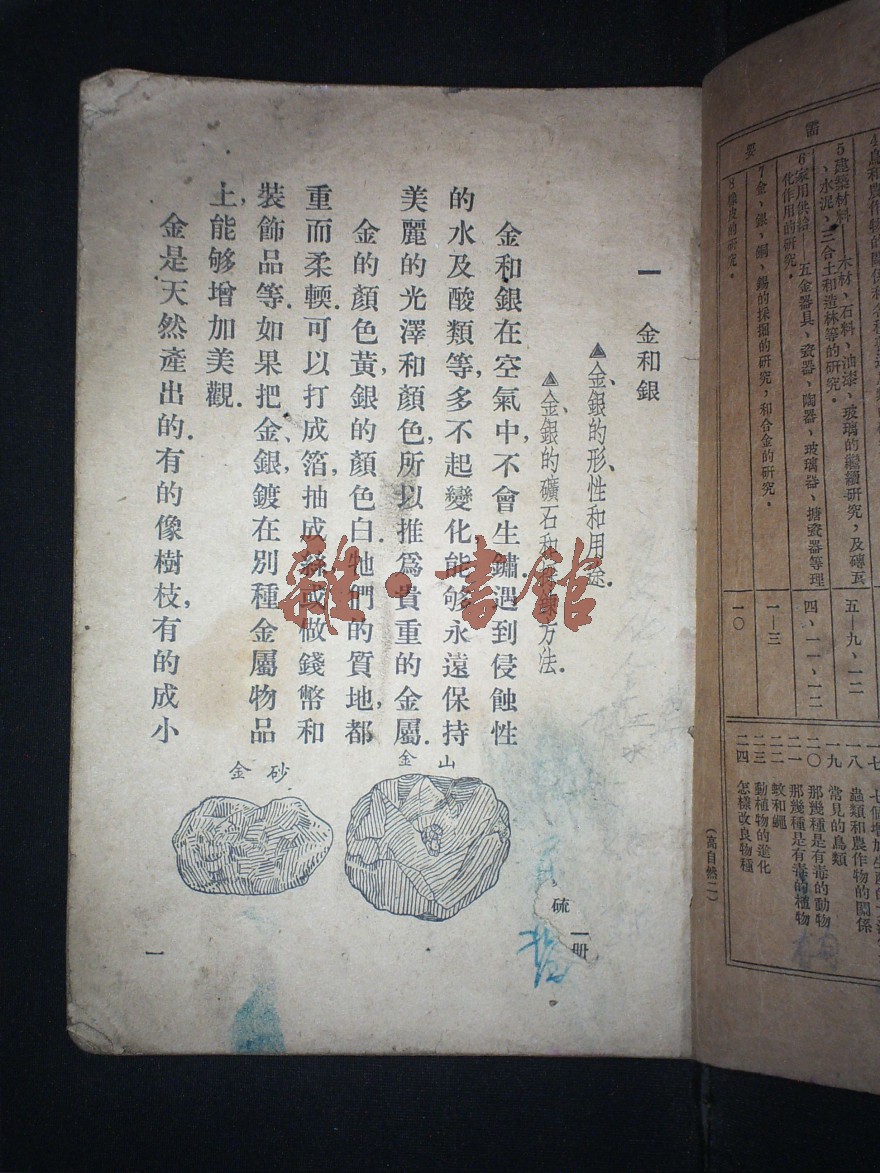 一　金和銀
▲金、銀的形、性和用途．
▲金、銀的礦石和
方法．
金和銀在空氣中，不會生鏽．遇到侵蝕性
的水及酸類等，多不起變化，能够永遠保持
美麗的光澤和顏色，所以推爲貴重的金屬．
金的顏色黃，銀的顏色白．牠們的質地，都
重而柔輭．可以打成箔，抽成絲，或做錢幣和
裝飾品等．如果把金、銀，鍍在別種金屬物品
上，能够增加美觀．
金是天然產出的．有的像樹枝，有的成小
山金
砂金
硫
一册
一
雜·書館
需
要
5 建築材料——木材、石料、油漆、玻璃的繼續研究，及磚瓦
、水泥、三合土和造林等的研究．
6 家用供給——五金器具、瓷器、陶器、玻璃器、搪瓷器等理
化作用的研究．
7 金、銀、銅、錫的採掘的研究，和合金的研究．
8 橡皮的研究．
五—九、一二
四、一一、一二
一—三
一〇
一八　蟲類和農作物的關係
一九　常見的鳥類
二〇　那幾種是有毒的動物
二一　那幾種是有毒的植物
二二　蚊和蠅
二三　動植物的進化
二四　怎樣改良物種
（高自然二）